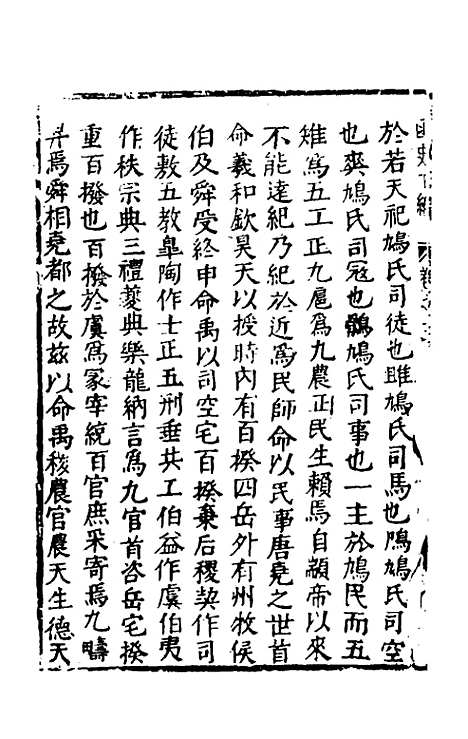 於若天祀鳩氏司徒也雎鳩氏司馬也鳲鳩氏司空
也爽鳩氏司冦也鶻鳩氏司事也一主於鳩民而五
雉爲五工正九扈爲九農正民生賴焉自顓帝以來
不能逹紀乃紀於近爲民師命以民事唐堯之世首
命羲和欽昊天以授時內有百揆四岳外有州牧侯
伯及舜受終申命禹以司空宅百揆棄后稷契作司
徒敷五教臯陶作士正五刑垂共工伯益作虞伯夷
作秩宗典三禮夔典樂龍納言爲九官首咨岳宅揆
重百揆也百揆於虞爲冢宰統百官庶采寄焉九疇
弁焉舜相堯都之故茲以命禹稷農官農天生德天